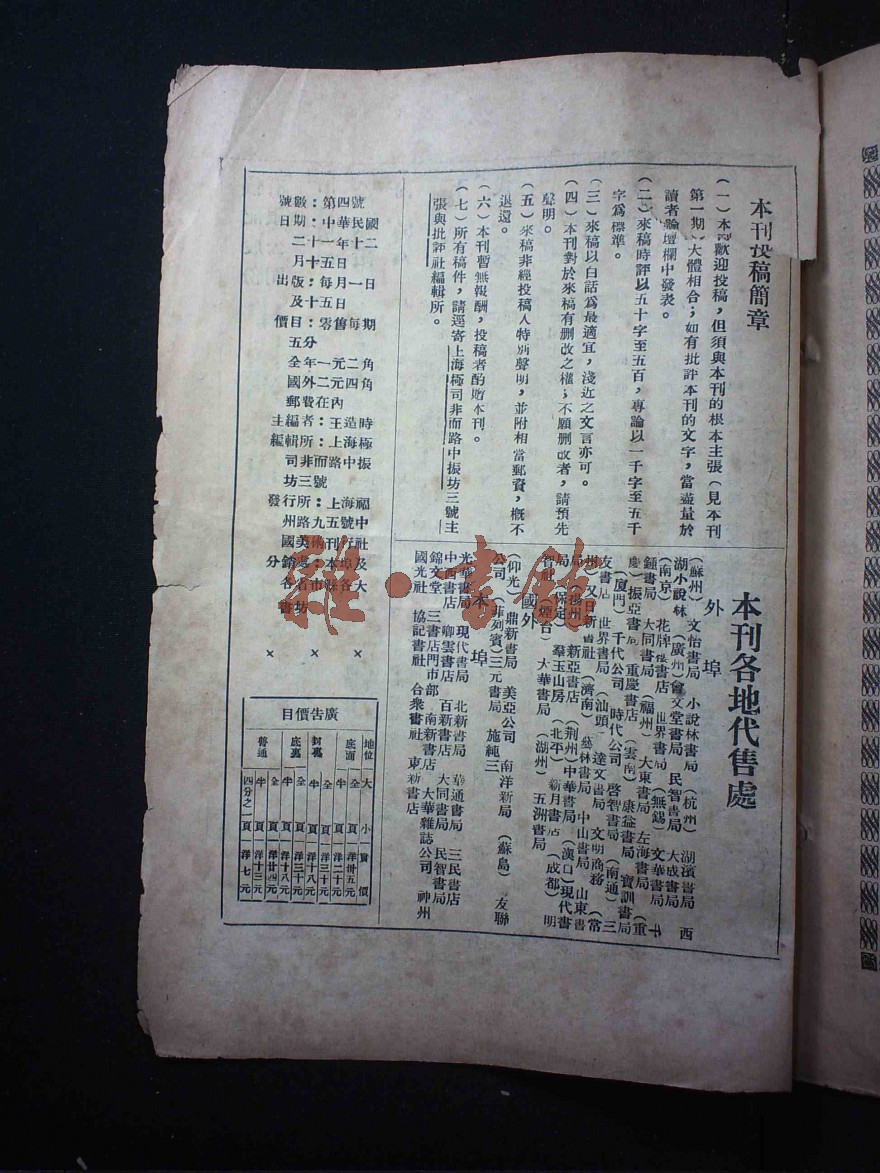 本刊投稿簡章
(一)本刊歡迎投稿,但須與本刊的根本主張(見本刊
第一期)大體相合;如有批評本刊的文字,當盡量於
讀者論壇欄中發表。
(二)來稿時評以五十字至五百,專論以一千字至五千
字為標準。
(三)來稿以白話為最適宜,淺近之文言亦可。
(四)本刊對於來稿有刪改之權;不願刪改者,請預先
聲明。
(五)來稿非經投稿人特別聲明,並附相當郵資,概不
退還。
(六)本刊暫無報酬,投稿者酌贈本刊。
(七)所有稿件,請逕寄上海極司非而路中振坊三號主
張與批評社編輯所。
本刊各地代售處
外埠
(蘇州)文怡書局 小說林書局 (杭州)湖濱書局 西
湖小說林 (廣州)會文堂書局 民智書局 大成書局
(南京)花牌樓書店 世界書局 (無錫)文華書局
鍾書局 大同書局 (福州)大東書局 左海書局 (重
慶)振亞書局 重慶書店 (雲南)康益書局 寶訓書局
(廈門)千代公司 時代公司 啓智書局 (南通)三
友書店 世界書局 (汕頭)達文書局 文明商務 (常
州)又日新書社 (濟南)藝林書局 中山書局 山東書
局 (揚州)新亞書店 (荆州)中華書局 (澳口)現代書
局 (保定)羣玉山房 (北平)新月書店 (成都)明
智社 (煙台)大華書局 (湖州)五洲書局
國外
(仰光)鼎新書局 美亞公司 南洋新局 (蘇島)友聯
公司 (菲列賓)三元書局 施純三
本埠
光華書局 現代書局 北新書局 華通書局 三民書店
中西書店 卿雲書店 百新書店 大同書局 民智書局
錦文堂 三書店門市部 南新書店 大華雜誌公司 神州
國光社 協記書社 合衆書社 東新書店
號數:第四號
日期:中華民國
二十一年十二
月十五日
出版:每月一日
及十五日
價目:零售每期
五分
全年一元二角
國外二元四角
郵費在內
主編者:王造時
編輯所:上海極
司非而路中振
坊三號
發行所:上海福
州路九五號中
國美術刊行社
分銷處:本埠及
各省市縣各大
書坊
× × ×
廣告價目
地位 大小 實價
底面 全頁 洋卅五元
半頁 洋二十元
封裏 全頁 洋三十元
半頁 洋十八元
底裏 全頁 洋三十元
半頁 洋十八元
普通 全頁 洋廿四元
半頁 洋十三元
四分之一頁 洋七元
雜·書館